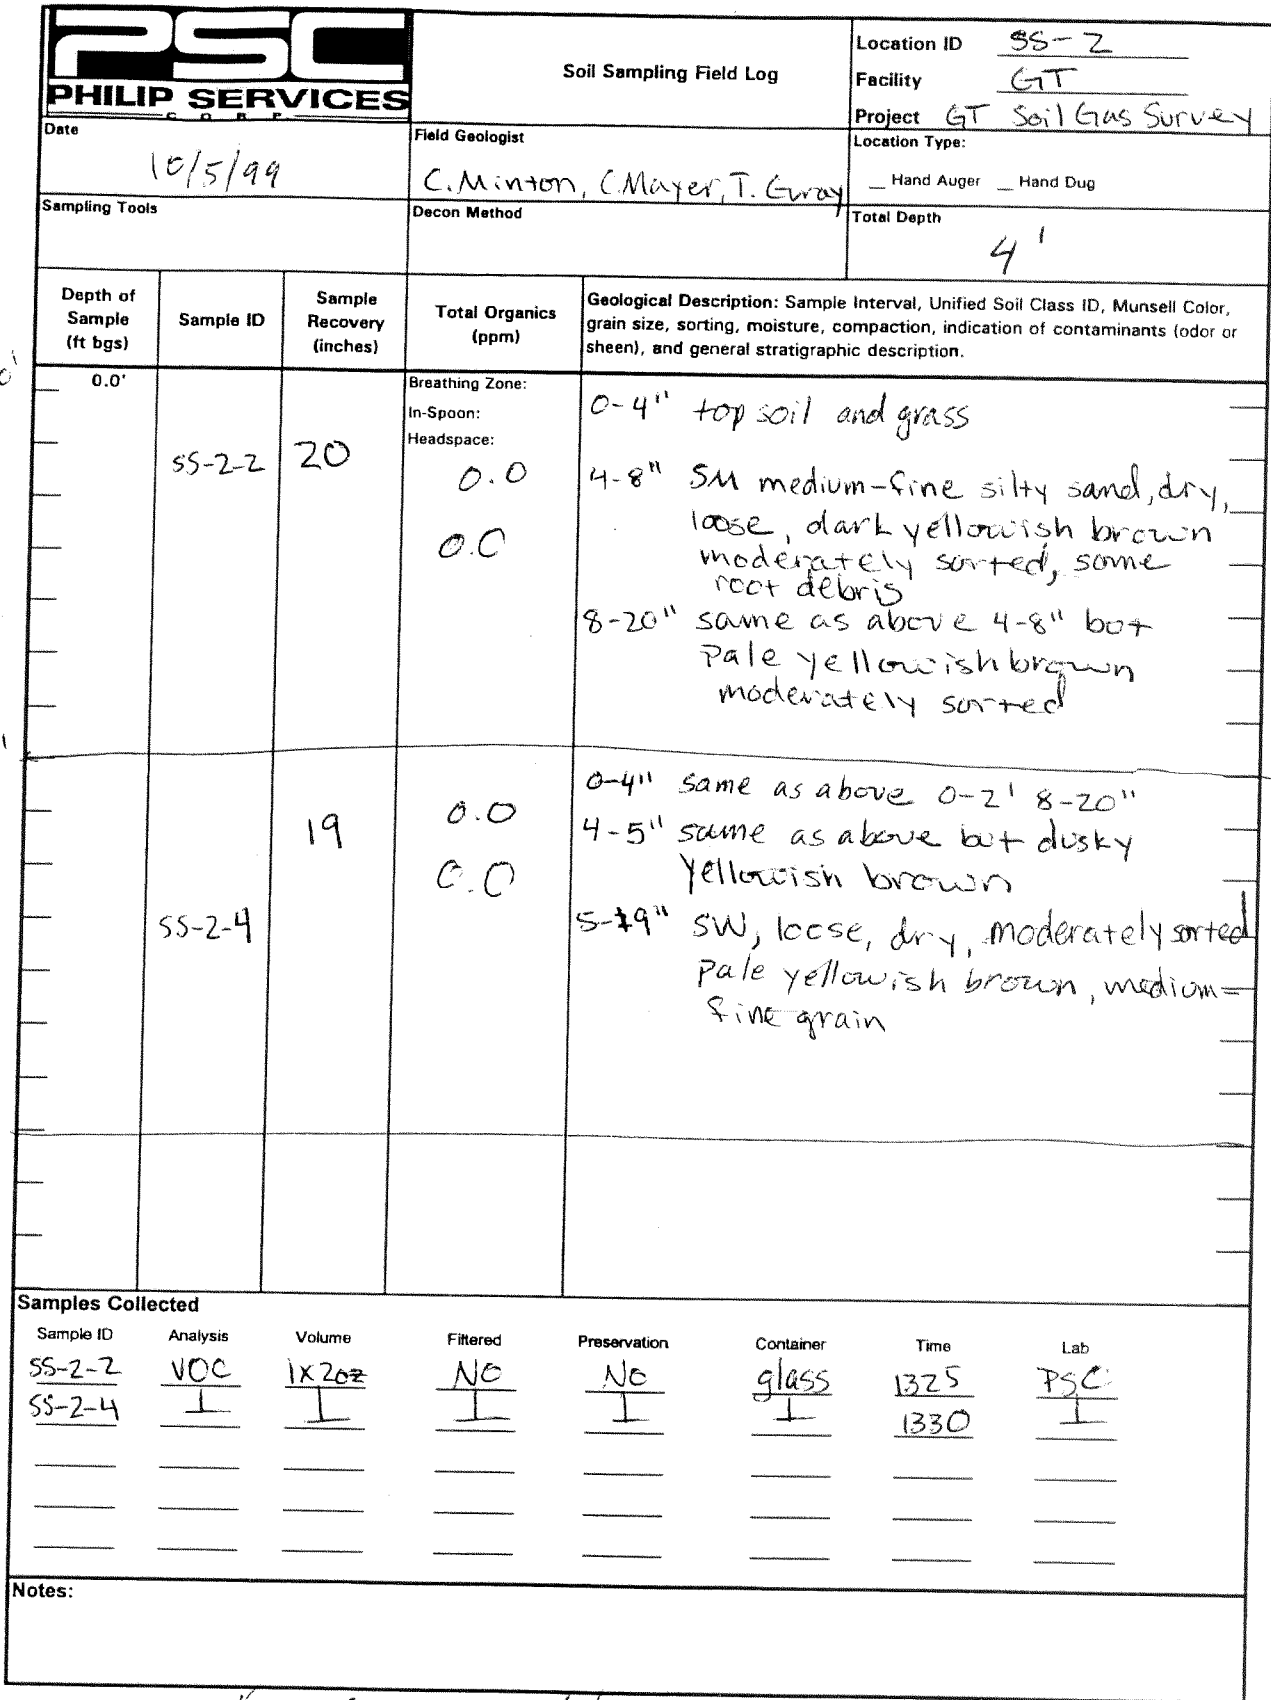 PSC
PHILIP SERVICES
CORP
Soil Sampling Field Log
Location ID SS-2
Facility GT
Project GT Soil Gas Survey
Date
10/5/99
Field Geologist
C. Minton, C. Mayer, T. Gray
Location Type:
_ Hand Auger _ Hand Dug
Sampling Tools
Decon Method
Total Depth
4'
Depth of Sample (ft bgs)
Sample ID
Sample Recovery (inches)
Total Organics (ppm)
Geological Description: Sample Interval, Unified Soil Class ID, Munsell Color,
grain size, sorting, moisture, compaction, indication of contaminants (odor or
sheen), and general stratigraphic description.
0'
0.0'
Breathing Zone:
In-Spoon:
Headspace:
SS-2-2 20
0.0
0.0
0-4" top soil and grass
4-8" SM medium-fine silty sand, dry,
loose, dark yellowish brown
moderately sorted, some
root debris
8-20" same as above 4-8" but
pale yellowish brown
moderately sorted
19
0.0
0.0
SS-2-4
0-4" same as above 0-2' 8-20"
4-5" same as above but dusky
yellowish brown
5-19" SW, loose, dry, moderately sorted
pale yellowish brown, medium-
fine grain
Samples Collected
Sample ID Analysis Volume Filtered Preservation Container Time Lab
SS-2-2 VOC 1x2oz NO NO glass 1325 PSC
SS-2-4 1330
Notes: